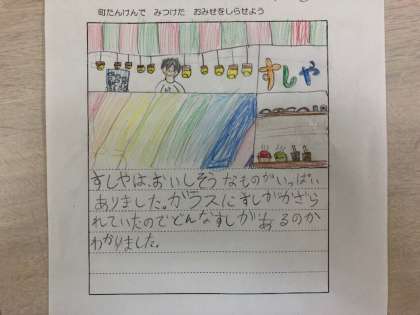 町たんけんで みつけた おみせをしらせよう
すしや
すしやは、おいしそうなものがいっぱい
ありました。ガラスにすしがかざら
れていたのでどんなすしがあるのか
わかりました。